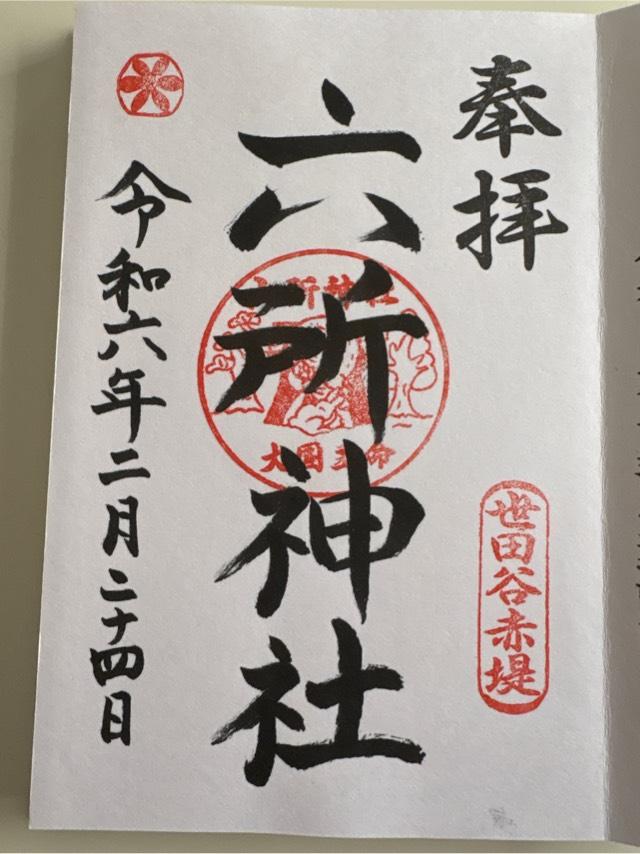 奉拝
世田谷赤堤
六所神社
六所神社
大国主命
令和六年二月二十四日